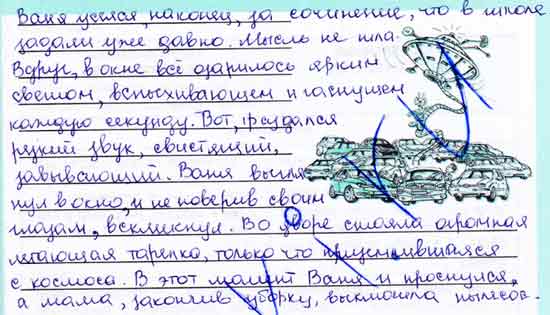 Ваня уселся, наконец, за сочинение, что в школе
задали уже давно. Мысль не шла.
Вдруг, в окне всё озарилось ярким
светом, вспыхивающем и гаснущем
каждую секунду. Вот, раздался
резкий звук, свистящий,
завывающий. Ваня выгля
нул в окно, и не поверив своим
глазам, вскликнул. Во дворе стояла огромная
летающая тарелка, только что приземлившаяся
с космоса. В этот момент Ваня и проснулся,
а мама, закончив уборку, выключила пылесос.